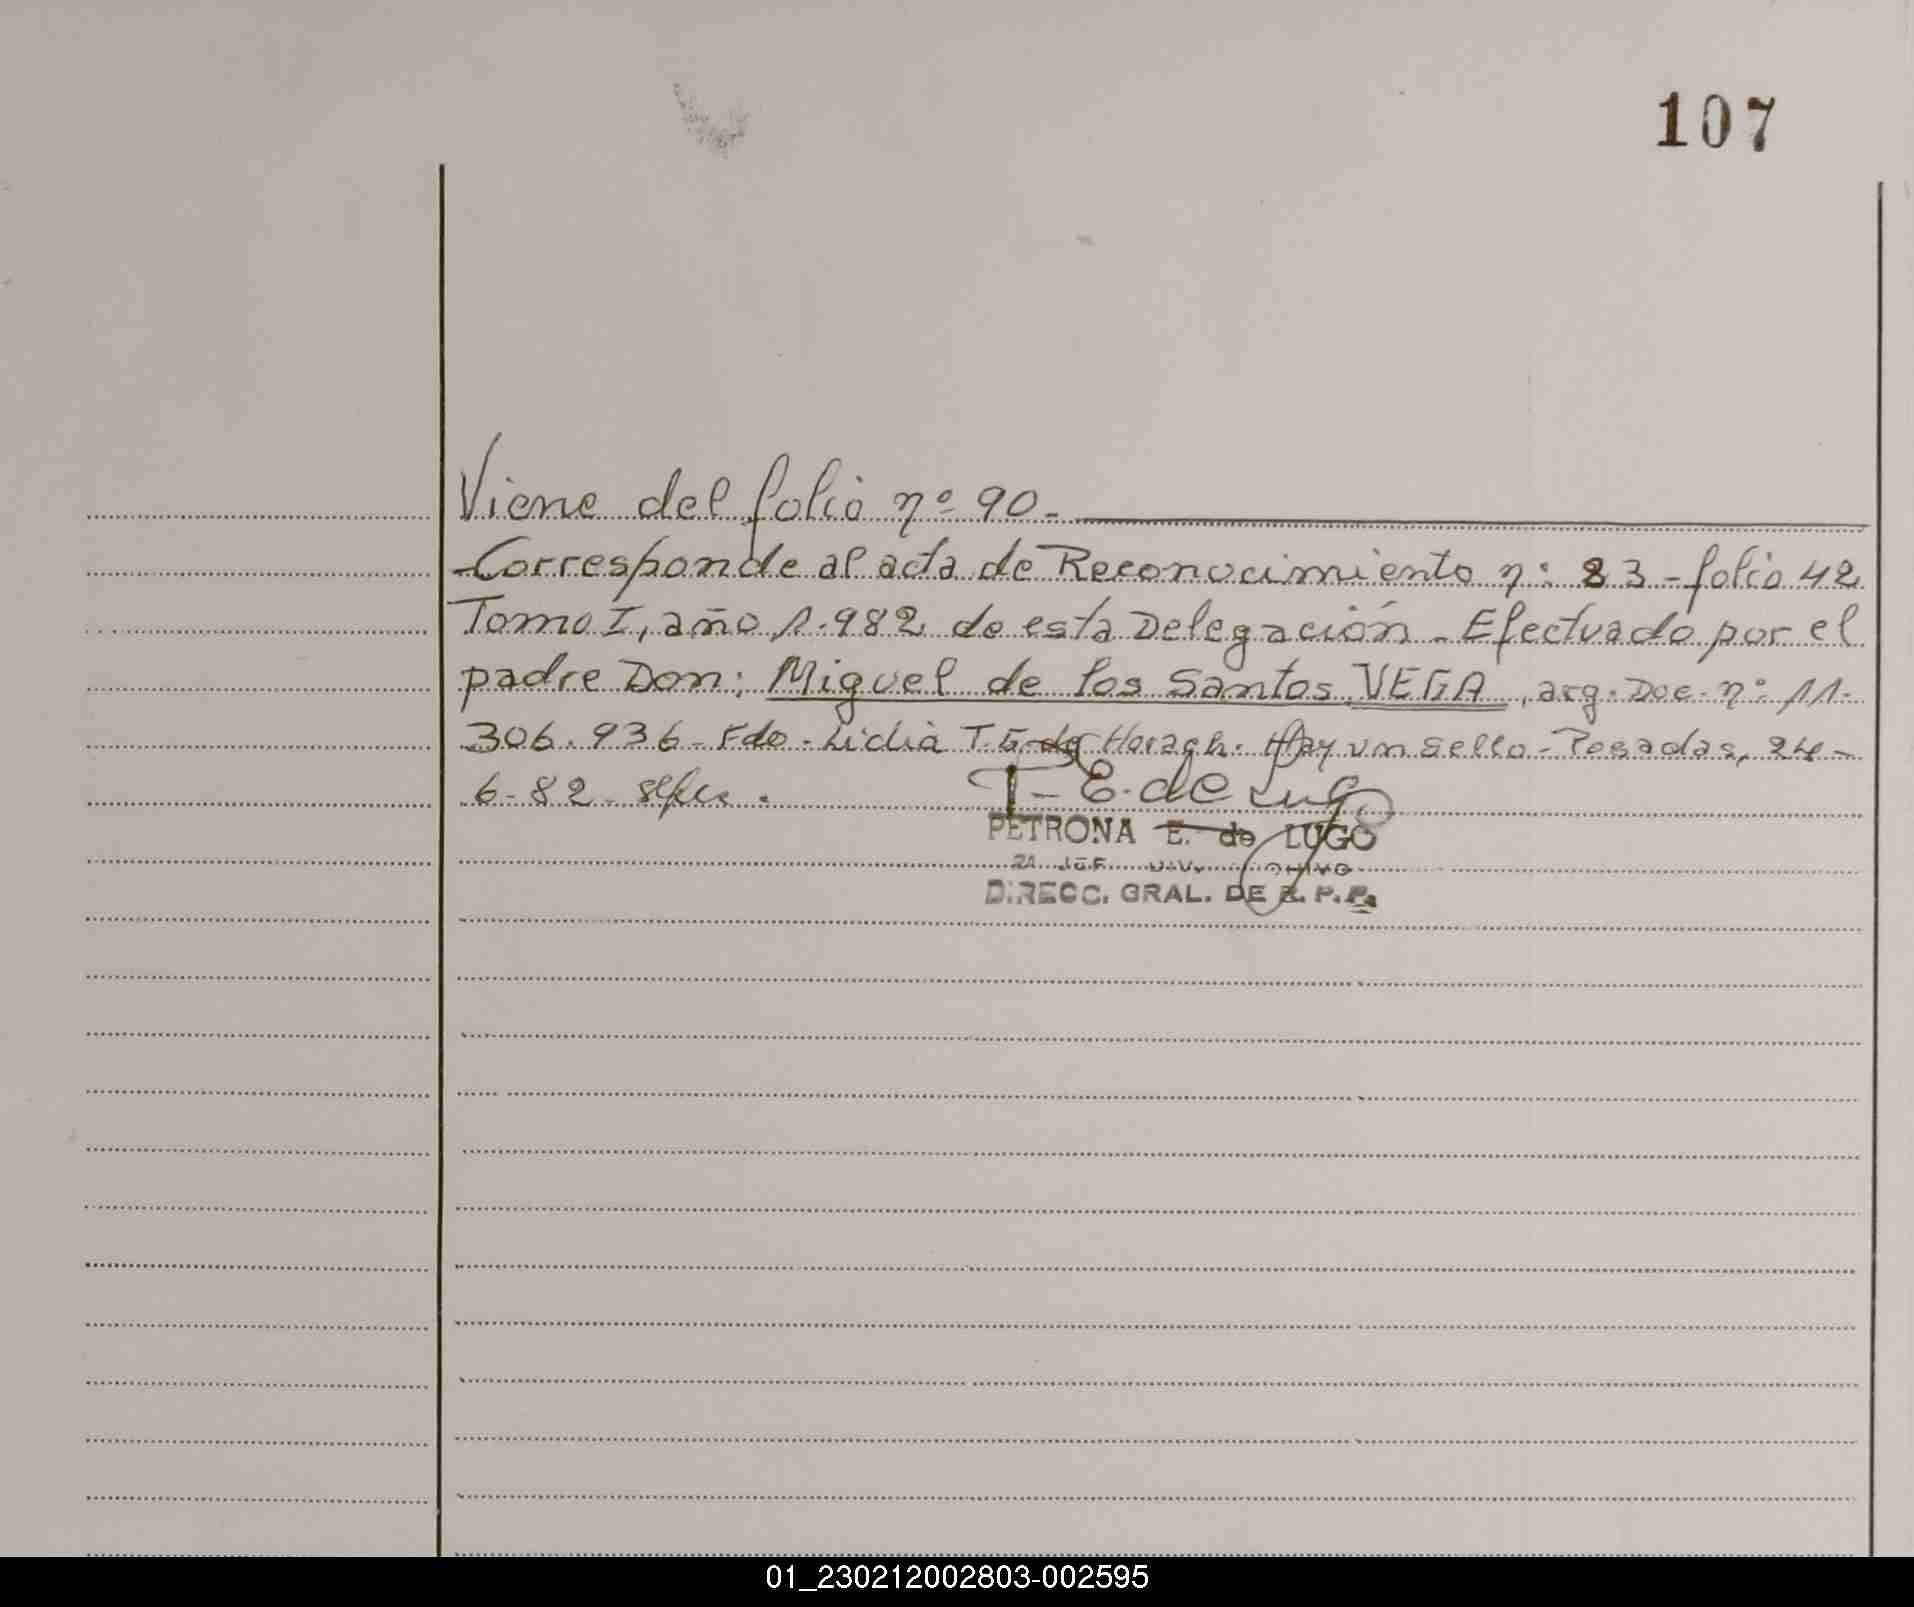 107
Viene del folio nº 90-
-Corresponde al acta de Reconocimiento nº: 83-folio 42
Tomo I, año 1.982 de esta Delegación - Efectuado por el
padre Don: Miguel de los Santos VEGA, arg. Doc. nº 11.
306.936-Fdo. Lidia T. G. de Horach. Hay un sello-Posadas, 24-
6-82-
P. E. de Lugo
PETRONA E. de LUGO
DIRECC. GRAL. DE R. P. P.
01_230212002803-002595